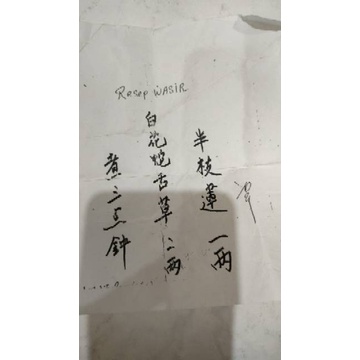 Resep WASIR
半枝蓮 一兩
白花蛇舌草 二兩
煮三点鈡